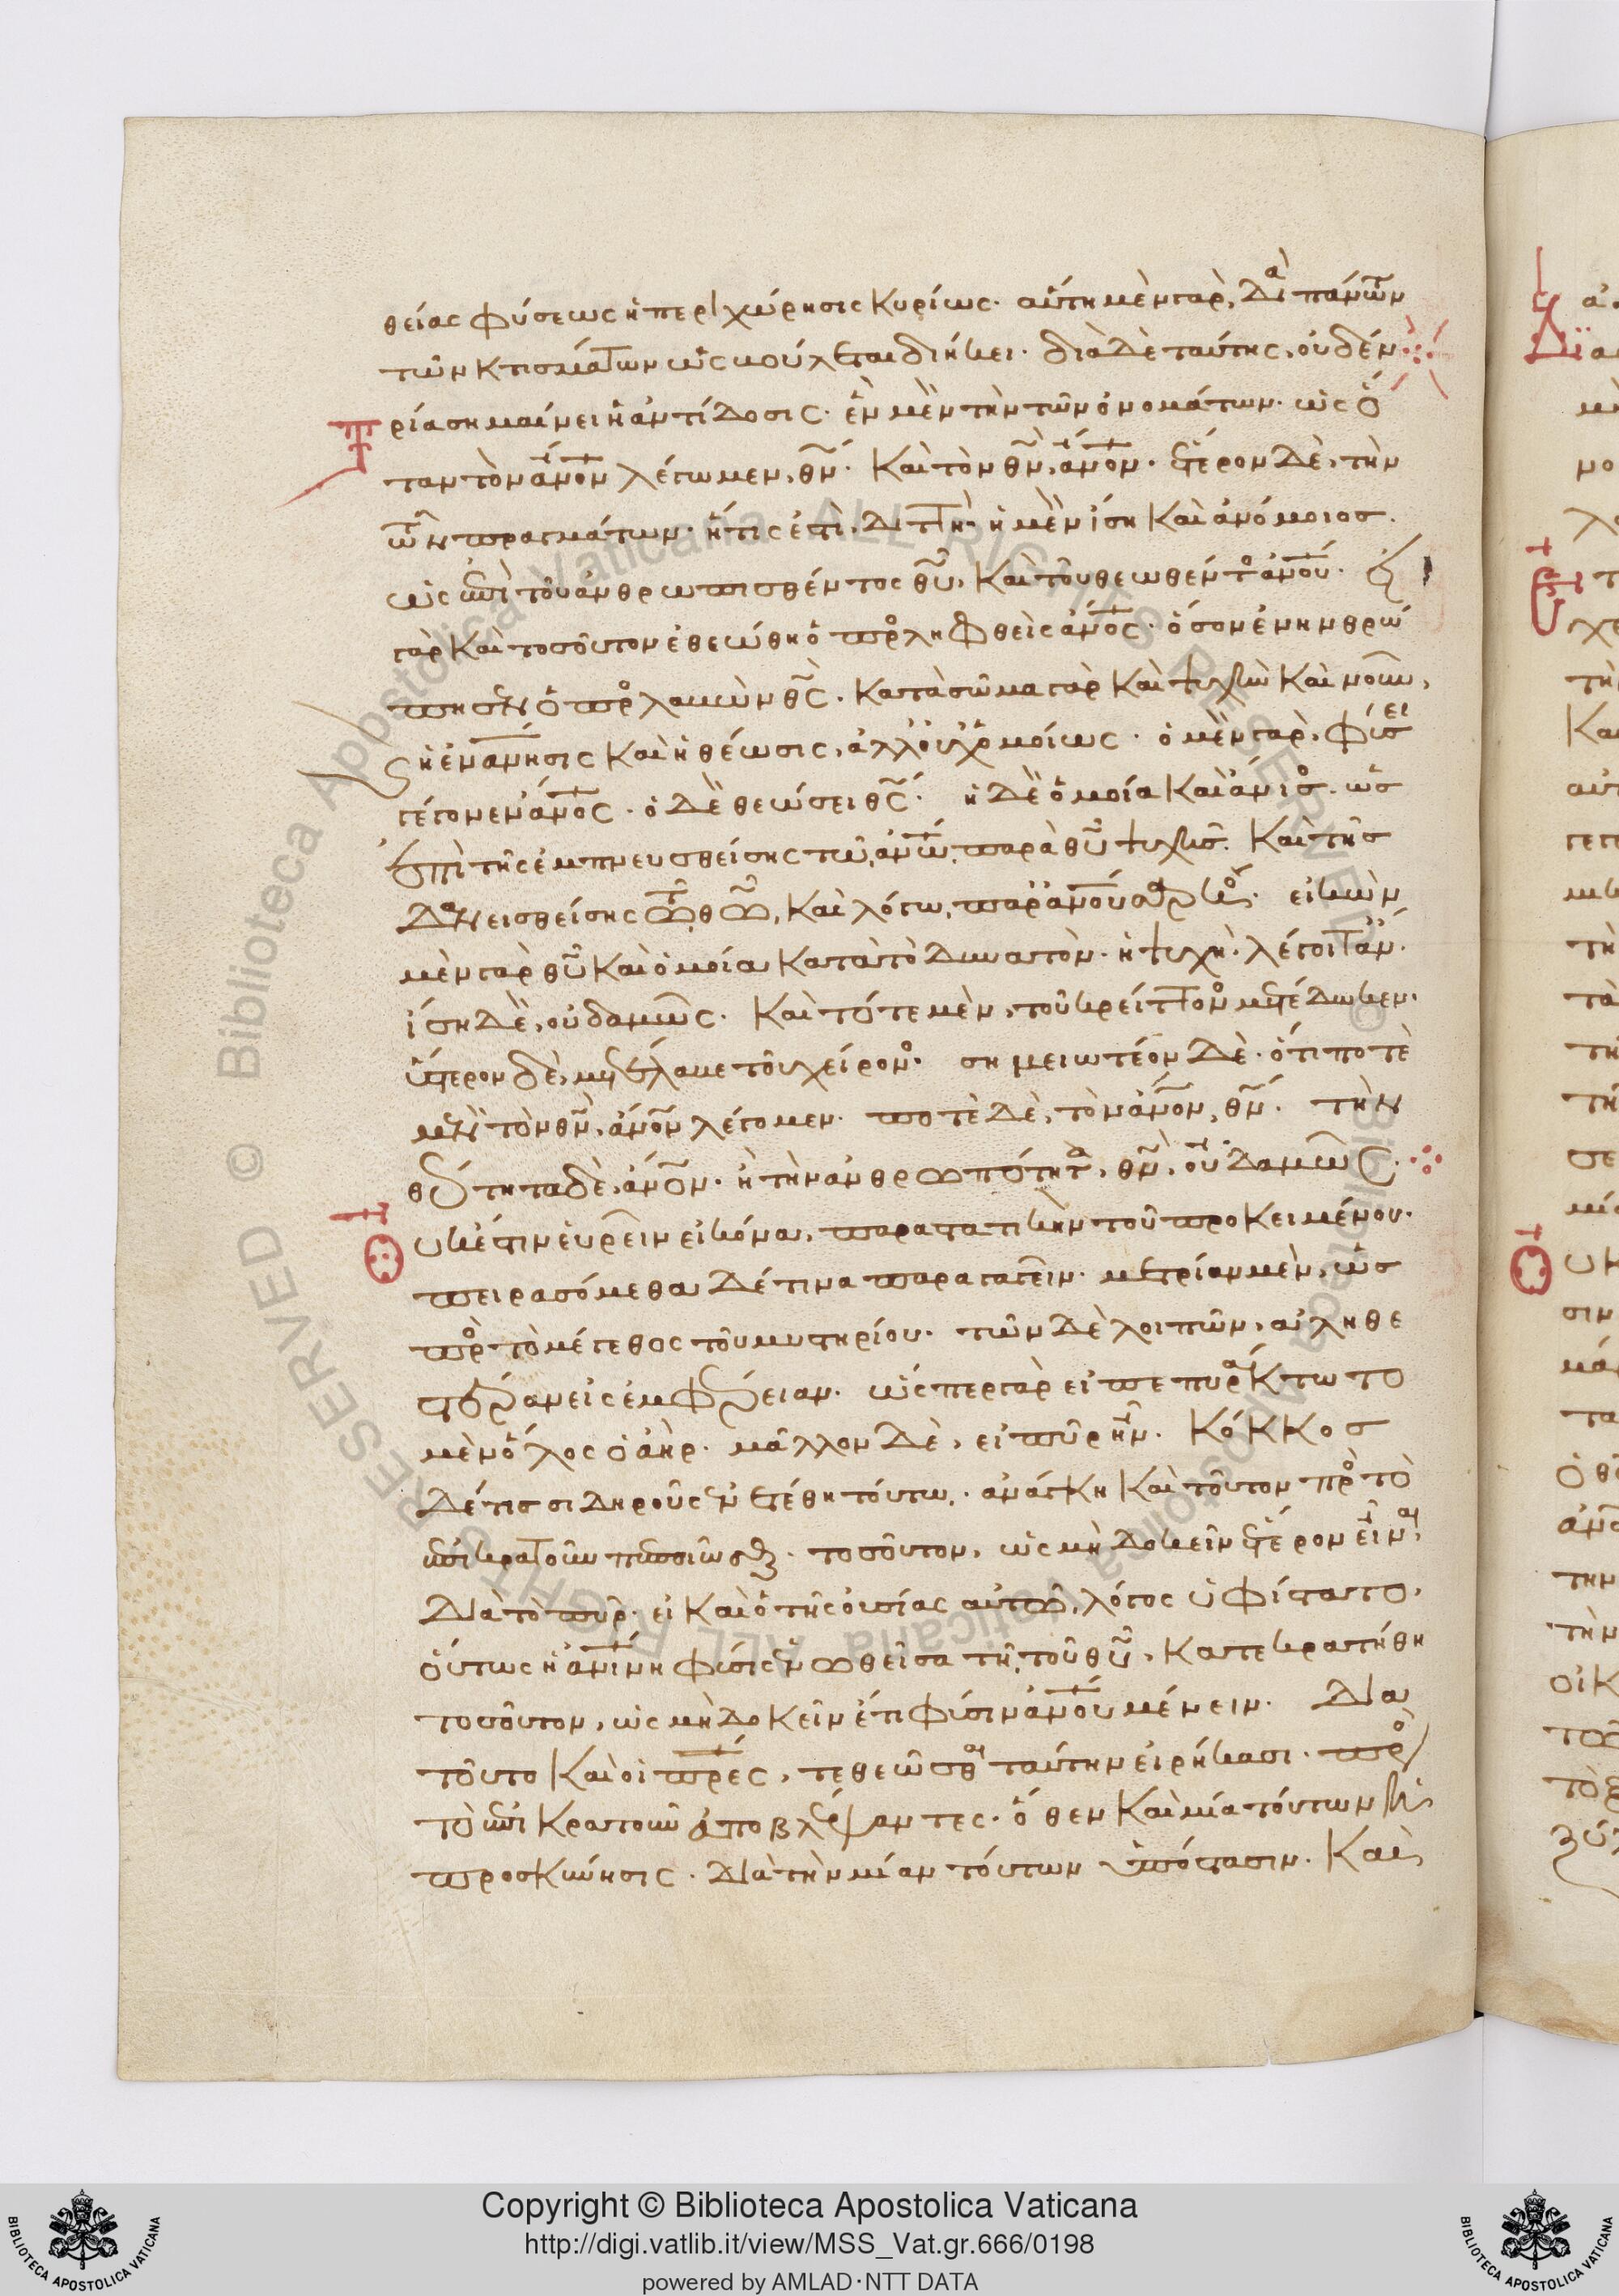 θείας φύσεως ἡ περιχώρησις κυρίως. αὕτη μὲν γὰρ, διὰ πάντων
τῶν κτισμάτων ὡς βούλεται διήκει. διὰ δὲ ταύτης, οὐδέν
Τρία σημαίνει ἡ ἀντίδοσις. ἓν μὲν τὴν τῶν ὀνομάτων. ὡς ὅ
ταν τὸν ἄνον λέγωμεν, θν. καὶ τὸν θν, ἄνον. ἕτερον δὲ, τὴν
τῶν πραγμάτων. ἥτις ἐστὶ, διττή. ἡ μὲν ἴση καὶ ἀνόμοιος.
ὡς ἐπὶ τοῦ ἀνθρωπισθέντος θυ, καὶ τοῦ θεωθέντος ἀνου. εἰ
γὰρ καὶ τοσοῦτον ἐθεώθη ὁ προσληφθεὶς ἄνος. ὅσον ἐνηνθρώ
πησεν ὁ προσλαβὼν θς. κατὰ σῶμα γὰρ καὶ ψυχὴν καὶ νοῦν,
ἡ ἐνάνησις καὶ ἡ θέωσις, ἀλλ' οὐχ ὁμοίως. ὁ μὲν γὰρ, φύσει
γέγονεν ἄνος. ὁ δὲ θεώσει θς. ἡ δὲ ὁμοία καὶ ἄνισος. ὡς
ἐπὶ τῆς ἐμπνευσθείσης τῷ ἀνῳ, παρὰ θυ ψυχῆς. καὶ τῆς
δανεισθείσης τῷ θω, καὶ λόγῳ, παρ' ἀνου σαρκός. εἰκὼν
μὲν γὰρ θυ καὶ ὁμοία κατὰ τὸ δυνατὸν. ἡ ψυχὴ. λέγοιτ' ἄν.
ἴση δὲ, οὐδαμῶς. καὶ τότε μὲν, τοῦ κρείττονος μετέδωκεν.
ὕστερον δὲ, μετέλαβε τοῦ χείρονος. σημειωτέον δὲ. ὅτι ποτὲ
μὲν τὸν θν, ἄνον λέγομεν. ποτὲ δὲ, τὸν ἄνον, θν. τὴν
θεότητα δὲ, ἄνον. ἢ τὴν ἀνθρωπότητα, θν, οὐδαμῶς.
Οὐκ ἔστιν εὑρεῖν εἰκόνα, παραστατικὴν τοῦ προκειμένου.
πειρασόμεθα δέ τινα παραγαγεῖν. μετρίαν μὲν, ὡς
πρὸς τὸ μέγεθος τοῦ μυστηρίου. τῶν δὲ λοιπῶν, ἀληθε
στέραν εἰς ἐμφέρειαν. ὥσπερ γὰρ εἰ πεπυράκτωτο
μὲν ὅλος ὁ ἀὴρ. μᾶλλον δὲ, εἰ πῦρ ἦν. κόκκος
δέ τις σιδηροῦς ἐνετέθη τούτῳ. ἀνάγκη καὶ τοῦτον πρὸς τὸ
ἐπικρατοῦν πεποιῶσθαι. τοσοῦτον, ὡς μὴ δοκεῖν ἕτερον εἶναι,
διὰ τὸ πῦρ. εἰ καὶ ὁ τῆς οὐσίας αὐτῶ, λόγος ὑφίστατο.
οὕτως ἡ ἀνίνη φύσις ἑνωθεῖσα τῇ τοῦ θυ, κατεκρατήθη
τοσοῦτον, ὡς μὴ δοκεῖν ἔτι φύσιν ἀνου μένειν. διὰ
τοῦτο καὶ οἱ πρες, τεθεῶσθαι ταύτην εἰρήκασι. πρὸς
τὸ ἐπικρατοῦν ἀποβλέψαντες. ὅθεν καὶ μία τούτων ἡ
προσκύνησις. διὰ τὴν μίαν τούτων ὑπόστασιν. καὶ
Copyright © Biblioteca Apostolica Vaticana
http://digi.vatlib.it/view/MSS_Vat.gr.666/0198
powered by AMLAD·NTT DATA